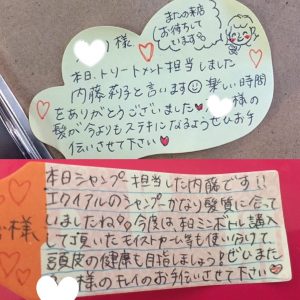 またの来店
お待ちして
います
様
本日、トリートメント担当しました
内藤莉子と言います☺楽しい時間
をありがとうございました♥ 様の
髪が今よりもステキになるようぜひお手
伝いさせて下さい♥
本日シャンプー担当した内藤です!!
エクイアルのシャンプーかなり髪質に合って
いましたね 今度は本日ミニボトル購入
して頂いたモイストカーム等も使い分けて、
頭皮の健康も目指しましょう!ぜひまた
様 様のキレイのお手伝いさせて下さい♡